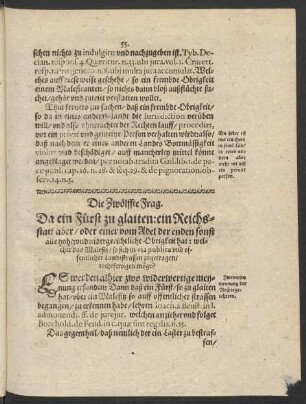 55.
schen nichts zu indulgirn und nachzugeben ist. Tyb. De-
cian. resp. vol. 4. Quæritur. n. 33. ubi jura. vol. 1. Cravett.
resp. 1. Pro genero n. 8. ubi multa jura accumulat. Wel-
ches auff diese weise geschehe / so ein frembde Obrigkeit
einem Malefitzanten / so niches dann bloß außflüchte su-
chet / gehör und zutritt verstatten wollte.
Thut ferners zur sachen / daß ein frembde Obrigkeit /
so da in eines andern lands die Jurisdiction verüben
will / und also ohnerachtet der Rechten lauff / procedirt,
vor ein privat und gemeine Person verhalten würd: also /
daß nach dem er eines anderen Landts Bottmässigkeit
und beschädiget / auff mancherley mittel könte
angeklaget werden / per notab. tradita Guil. libr. de pa-
ce publ. cap. 16. n. 28. & seq. 29. & de pignorationib.
obser. 14. n. 5.
Die Zwölffte Frag.
Da ein Fürst zu glaiten: ein Reichs-
statt aber / oder einer vom Adel der enden sonst
alle hohe / und nidergerichtliche Obrigkeit hat: wel-
cher das Malefitz / so sich in via publica und of-
fentlicher Landtstrassen zugetragen /
rechtfertigen möge?
ES werden alhier zwo widerwertige mei-
nung erfunden. Dann daß ein Fürst / so zu glaiten
hat / oder ein Malefitz so auff offentlicher strassen
begangen / zu erkennen habe / lehren Joachin. Beust. in l.
admonendi. ff. de jurejur. welchen anziehet und folget
Borchold. de Feud. in c. quæ sint regalia. n. 25.
Das gegentheil / daß nemlich der ein Laster zu bestraf-
fen /